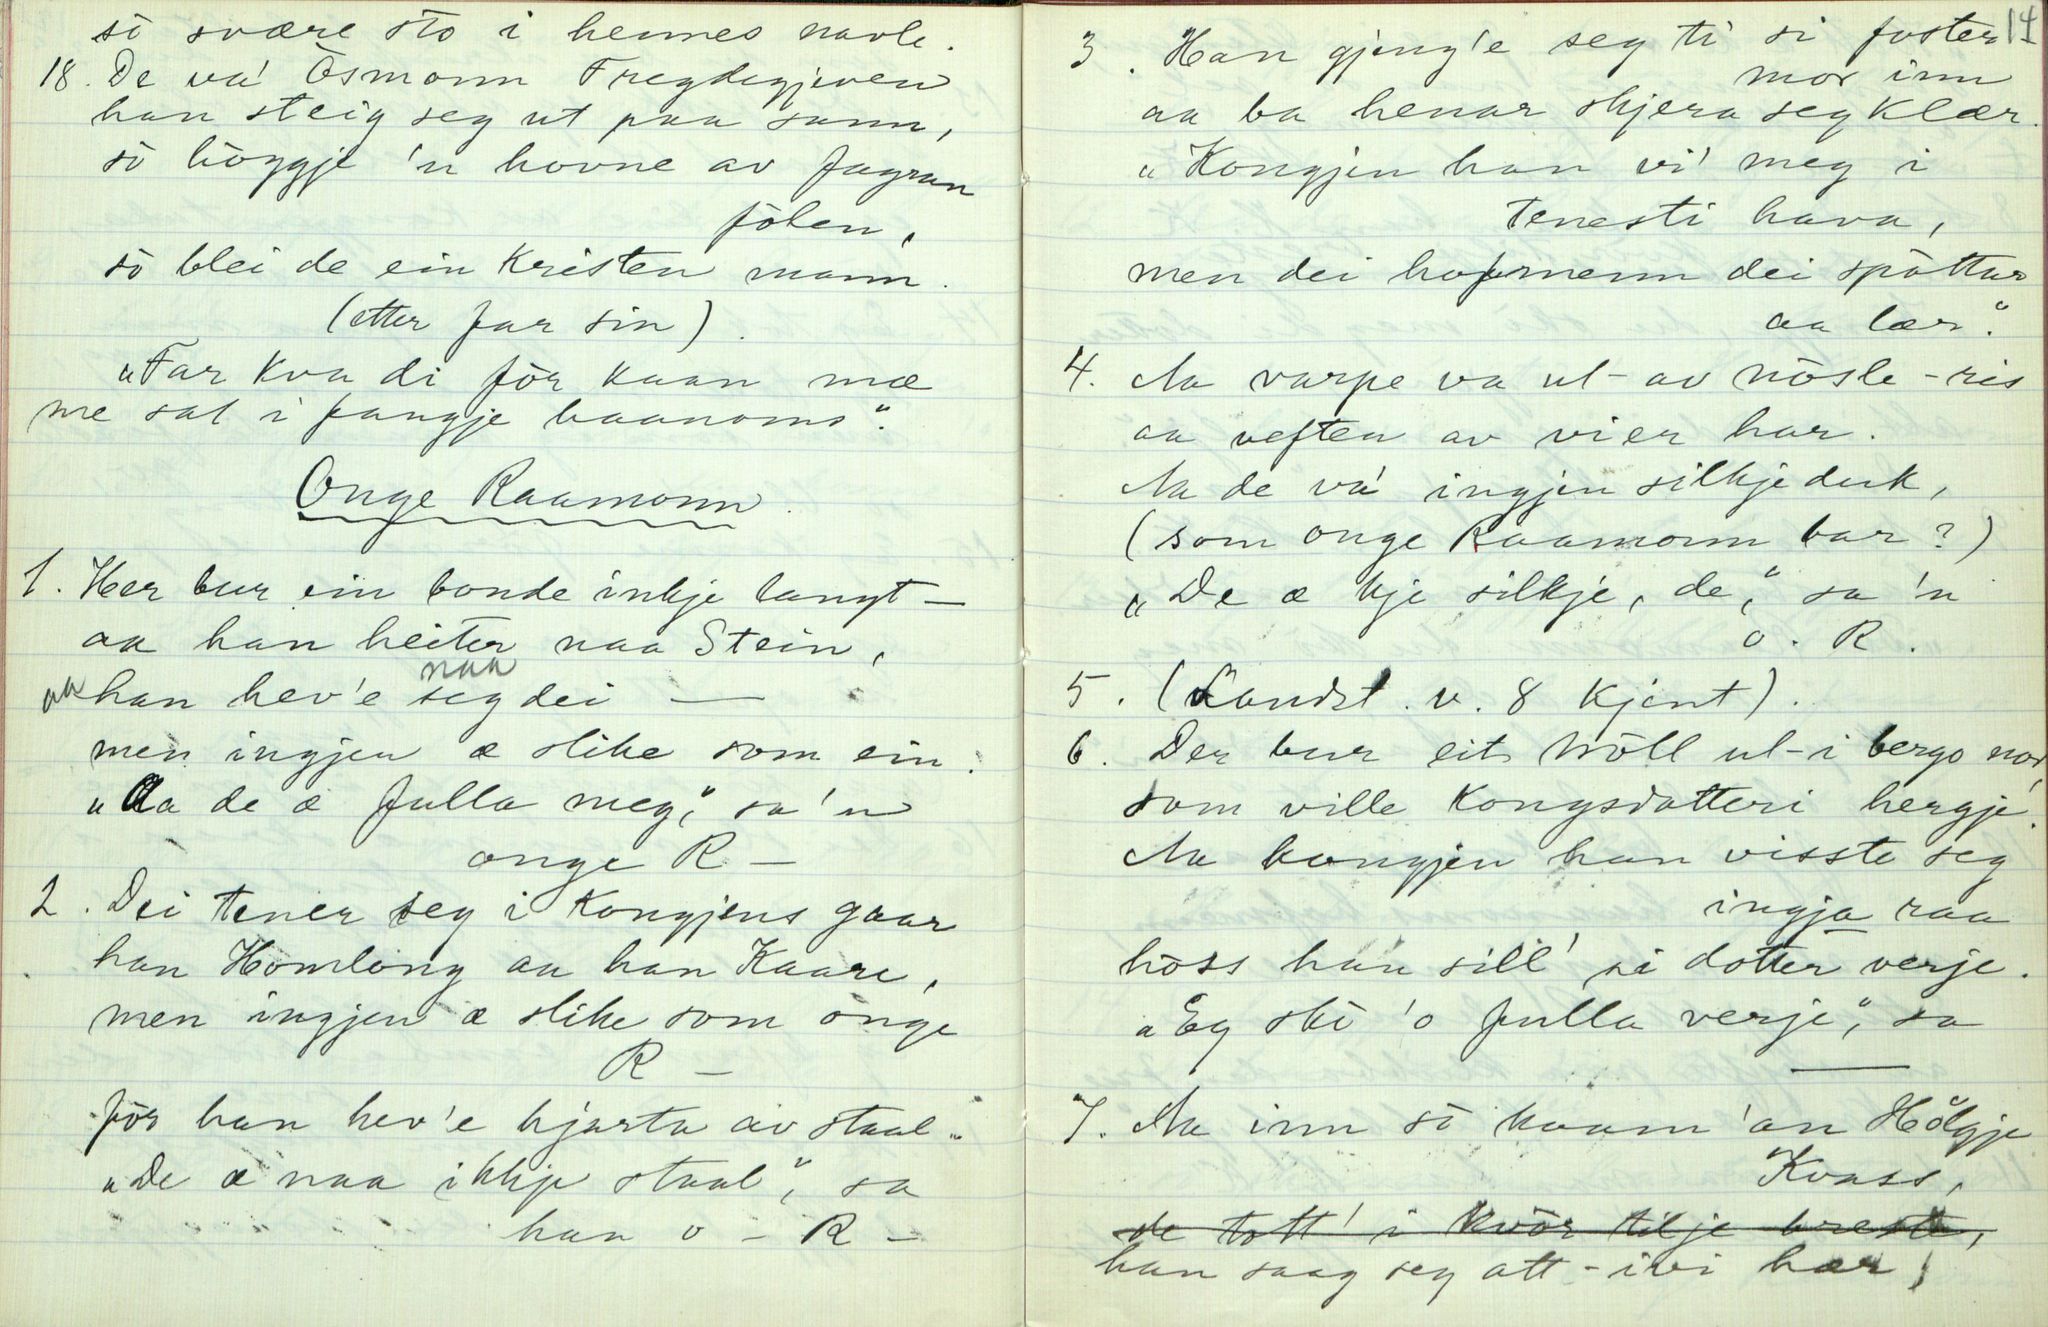 sò svære sto i hennes navle.
18. De va' Òsmonn Fregdegjæven
han steig seg ut paa sann,
sò höggje 'n hovne av fagran
fòlen,
sò blei de ein kristen mann.
(etter far sin).
"Far kva di fòr kaan mæ
me sat i fangje baanoms".
Onge Raamonn.
1. Her bur ein bonde inkje langt —
aa han heiter naa Stein,
aa han hev'e naa seg dei —
men ingjen æ slike som ein.
"Aa de æ fulla meg", sa 'n
onge R —
2. Dei tener seg i Kongjens gaar
han Homlong aa han Kaare,
men ingjen æ slike som onge
R —
fòr han hev'e hjarta av staal.
"De æ naa ikkje staal", sa
han o — R —
14
3. Han gjeng'e seg ti' si foster
mor inn
aa ba henar skjera seg klær.
"Kongjen han vi' meg i
tenesti hava,
men dei hofmenn dei spòttar
aa lær".
4. Aa varpe va ut-av nòsle-ris
aa veften av vier har.
Aa de va' ingjen silkjeduk,
(som onge Raamonn bar?)
"De æ kje silkje, de", sa 'n
o. R.
5. (Landst. v. 8 kjent).
6. Der bur eit tròll ut-i bergo nor,
som ville kongsdotteri hergje.
Aa kongjen han visste seg
ingja raa
hòss han sill' si dotter verje.
"Eg ski 'o fulla verje", sa
—
7. Aa inn sò kaam 'an Hölgje
Kvass,
de tott' i kvòr tilje breste,
han saag seg att-ivi hær,